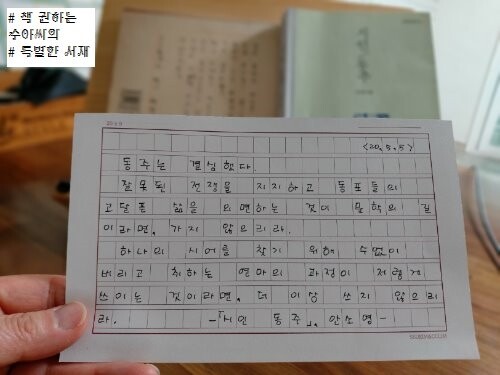 # 책 권하는
수아씨의
# 특별한 서재
시인 동주
20×9
<20. 5. 5>
동주는 결심했다.
잘못된 전쟁을 지지하고 동포들의
고달픈 삶을 외면하는 것이 문학의 길
이라면, 가지 않으리라.
하나의 시어를 찾기 위해 수없이
버리고 취하는 연마의 과정이 저렇게
쓰이는 것이라면, 더 이상 쓰지 않으리
라. -「시인 동주」, 안소영-